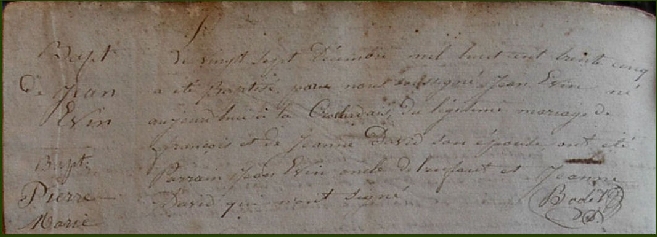 Bapt
de Jean
Evin
Le vingt sept décembre mil huit cent trente cinq
a été baptisé, par nous soussigné Jean Evin né
aujourd'hui à la du légitime mariage de
François et de Jeanne David son épouse ont été
Parrain Jean Evin oncle de l'enfant et Jeanne
David qui n'ont signé
Bapt
Pierre
Marie